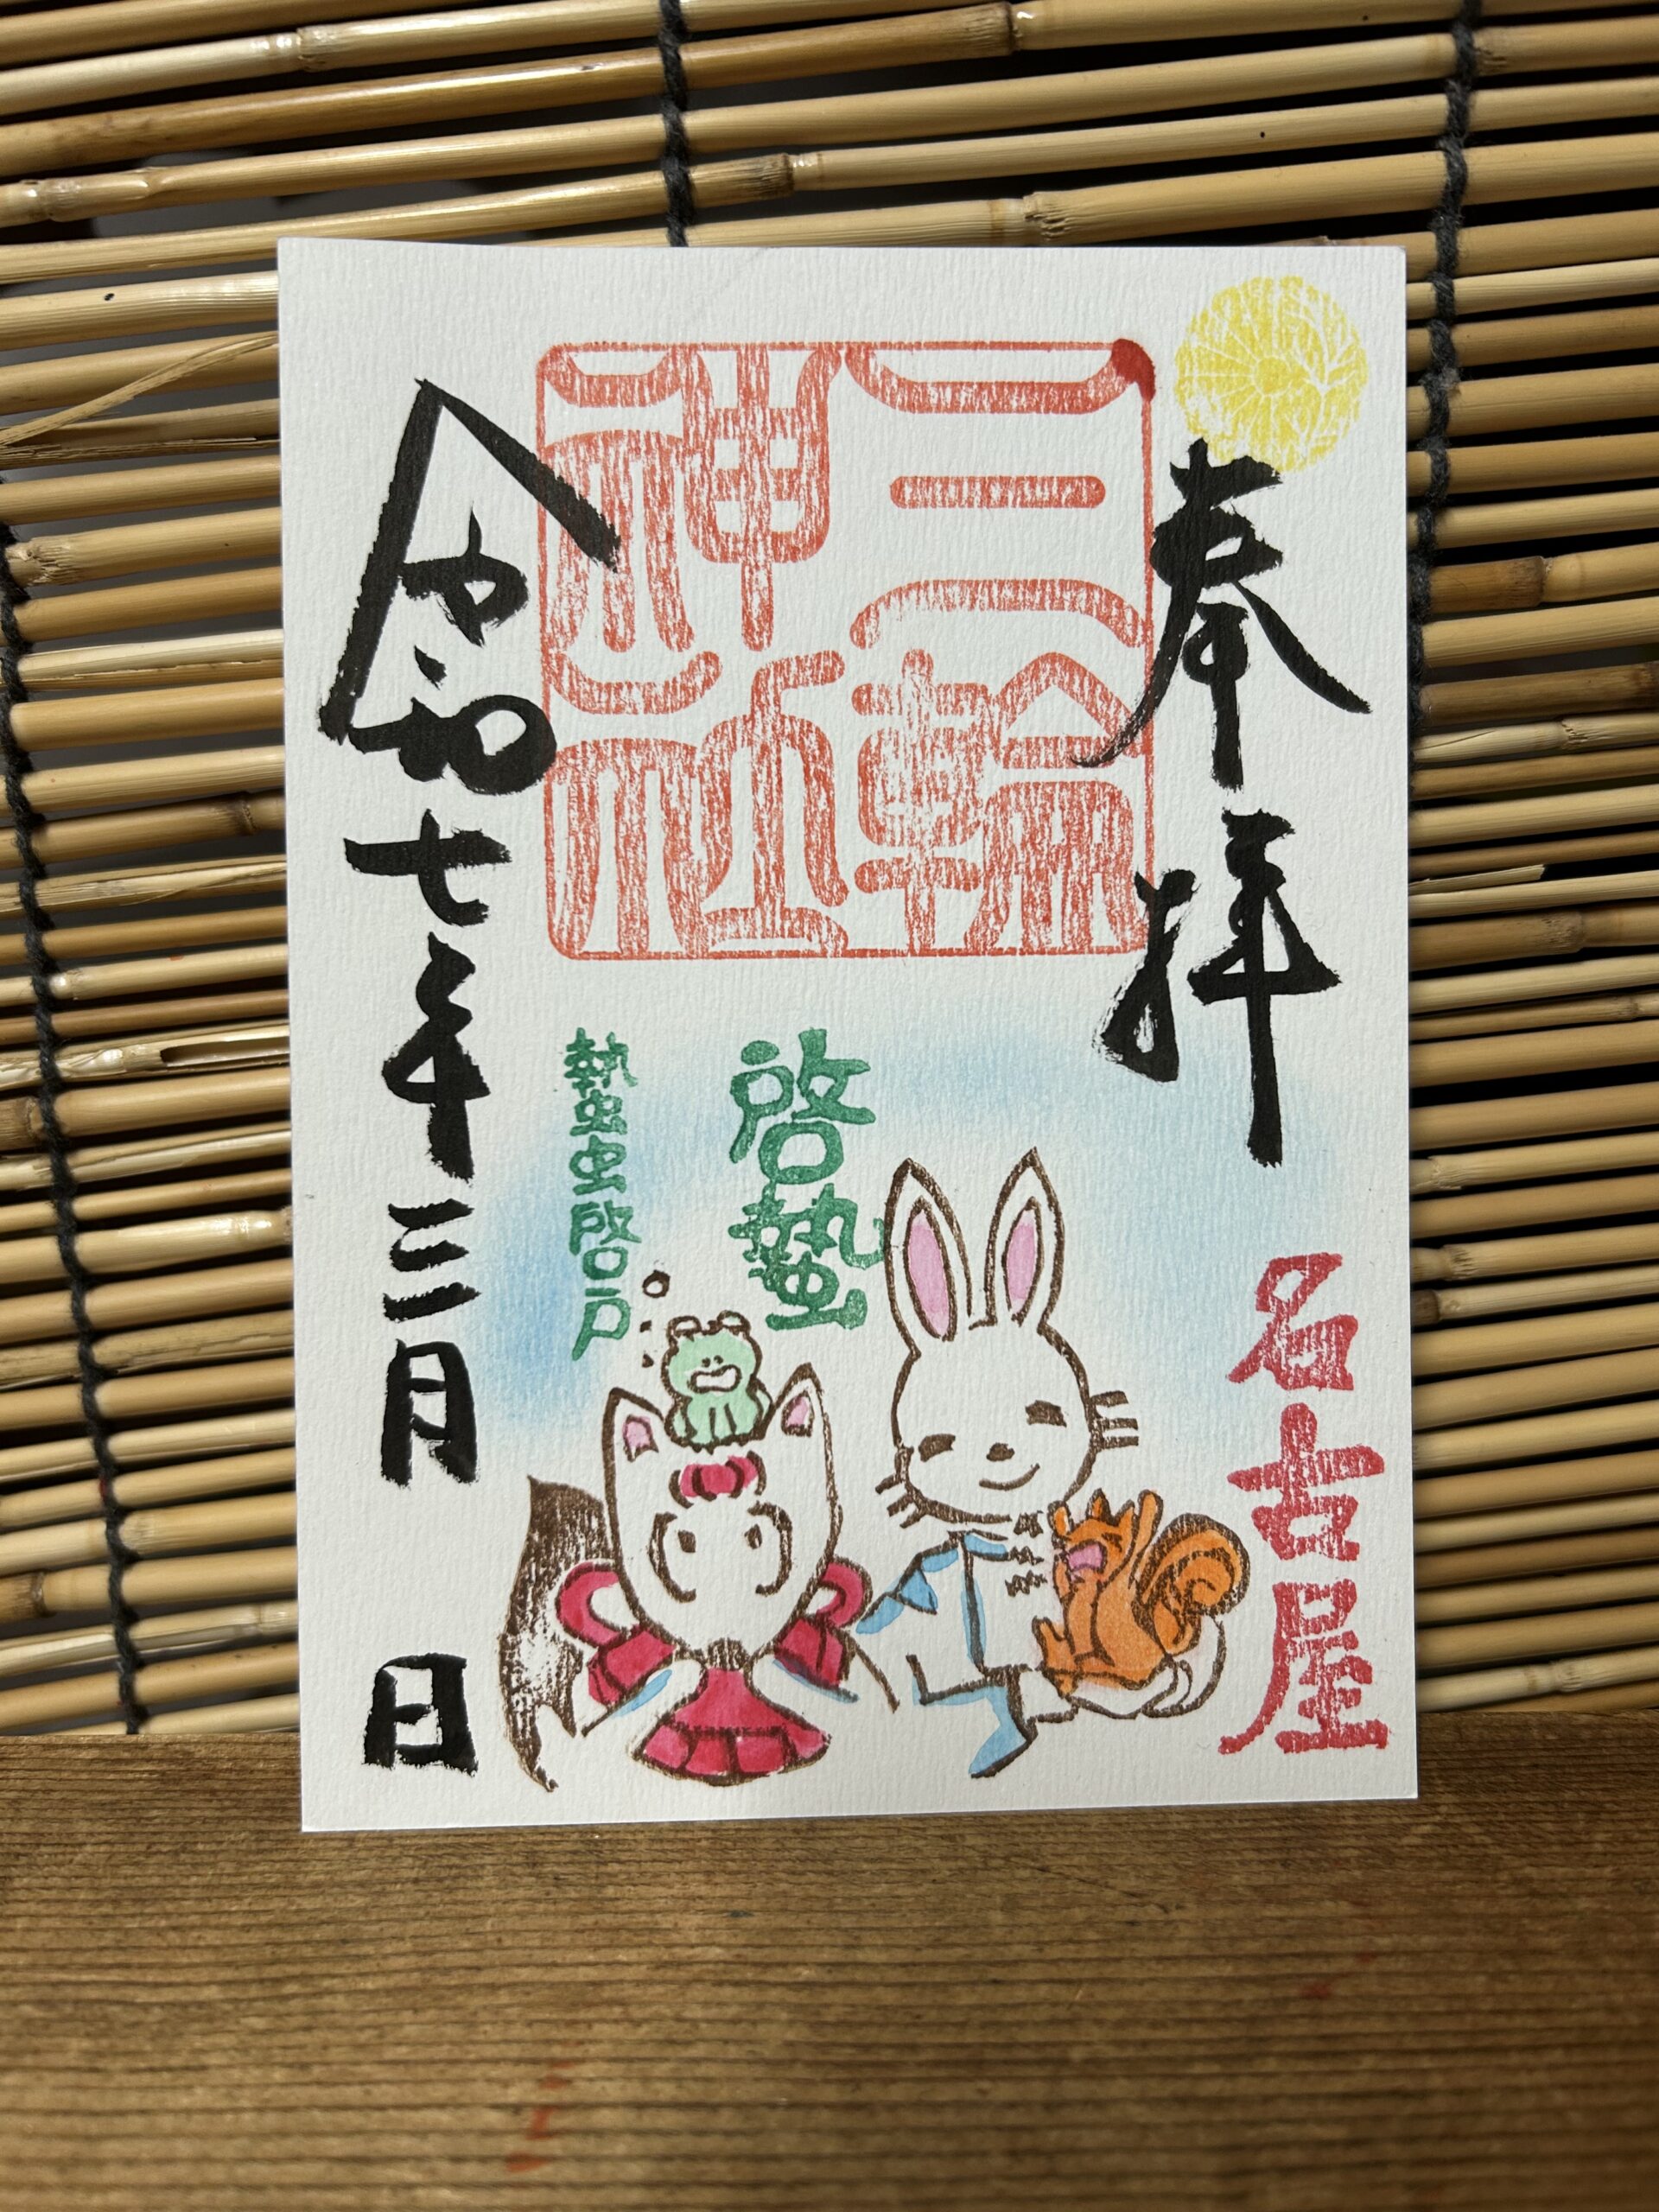 奉拝
名古屋
三輪
神社
啓蟄
蟄虫啓戸
令和七年三月 日